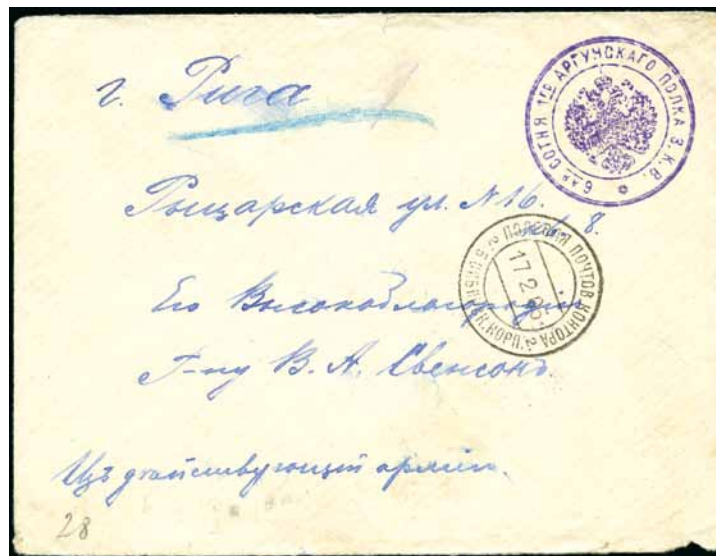 6АЯ СОТНЯ 1ГО АРГУНСКАГО ПОЛКА З.К.В.
г. Рига
Рыцарская ул. N 16.
8.
ПОЛЕВАЯ ПОЧТОВ. КОНТОРА
17.2.
Его Высокоблагородию
Г-ну В. А. Свенсонъ.
Изъ действующей армiи.
28